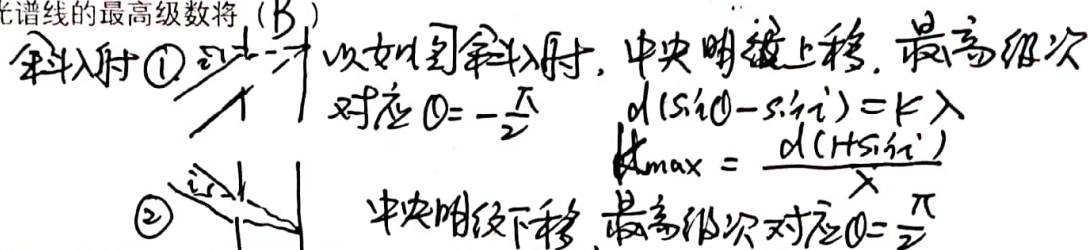 光谱线的最高级数将（B）
斜入射① i 以如图斜入射，中央明纹上移，最高级次
对应θ=-π/2 d(sinθ-sini)=kλ
kmax = d(1+sini)/λ
② i 中央明纹下移，最高级次对应θ=π/2